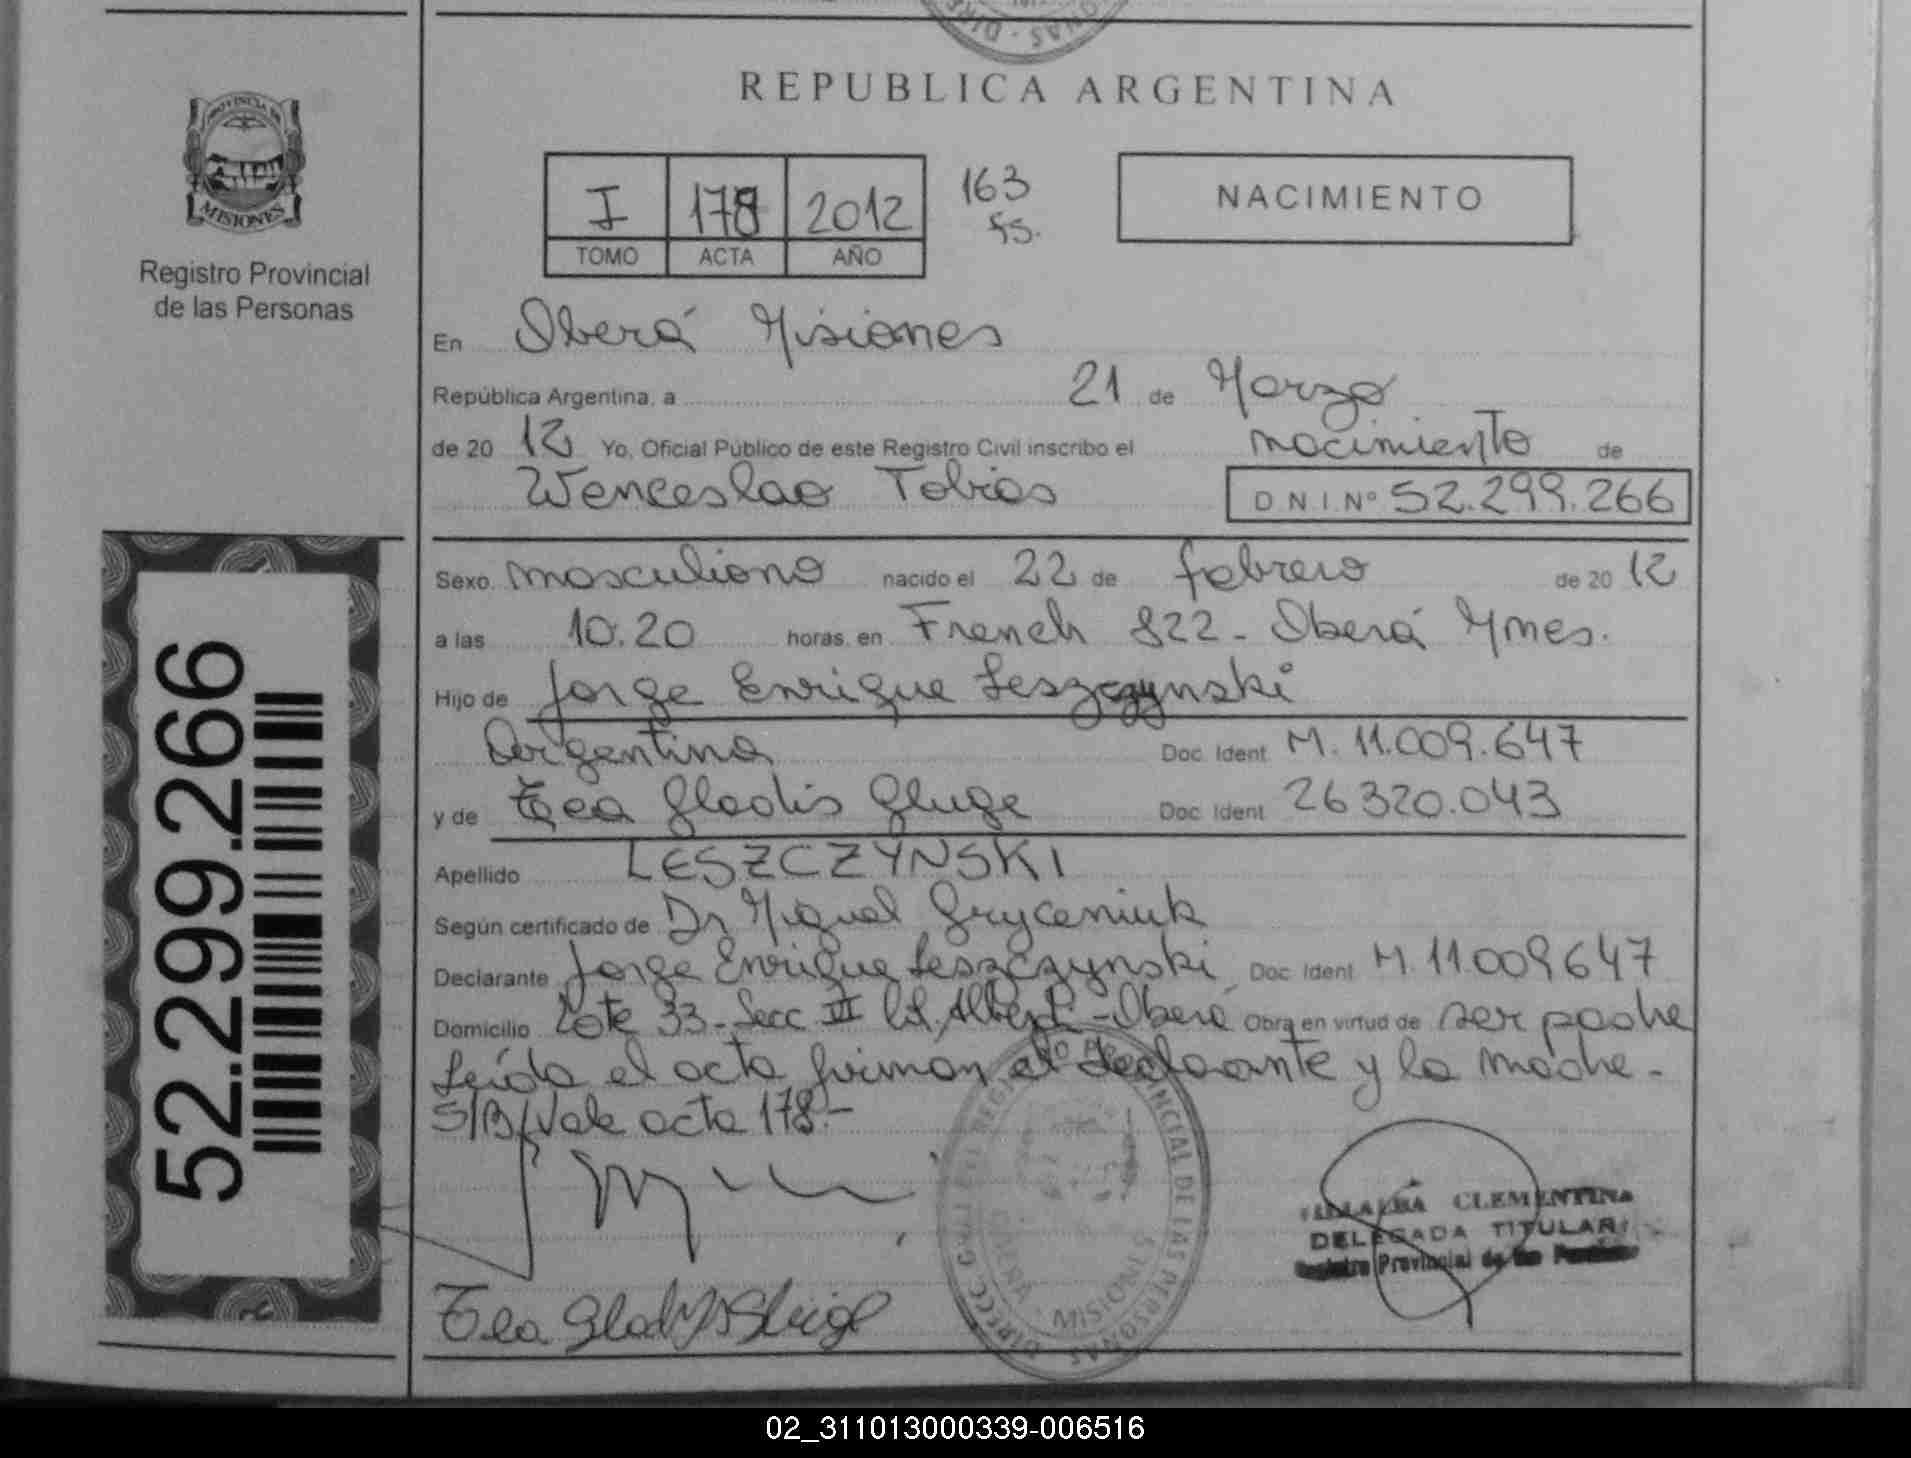 REPUBLICA ARGENTINA
PROVINCIA DE
MISIONES
Registro Provincial
de las Personas
I 178 2012 163
fs.
TOMO ACTA AÑO
NACIMIENTO
En Oberá Misiones
República Argentina, a 21 de Marzo
de 20 12 Yo, Oficial Público de este Registro Civil inscribo el nacimiento de
Wenceslao Tobias D.N.I.Nº 52.299.266
Sexo masculiono nacido el 22 de febrero de 20 12
a las 10.20 horas, en French 822 - Oberá Mnes.
Hijo de Jorge Enrique Leszczynski
Argentina Doc. Ident. M. 11.009.647
y de Tea Gladis Gluge Doc. Ident. 26320.043
Apellido LESZCZYNSKI
Según certificado de Dr Miguel Gryceniuk
Declarante Jorge Enrique Leszczynski Doc. Ident. M. 11.009647
Domicilio Lote 33 - Secc VI - Oberá Obra en virtud de ser padre
Leída el acta firman el declarante y la madre -
S/B/ Vale acta 178.-
52.299.266
CLEMENTINA
DELEGADA TITULAR
Registro Provincial de las Personas
PROVINCIAL DE LAS PERSONAS
OBERA - MISIONES
Tea Gladys Glüge
02_311013000339-006516